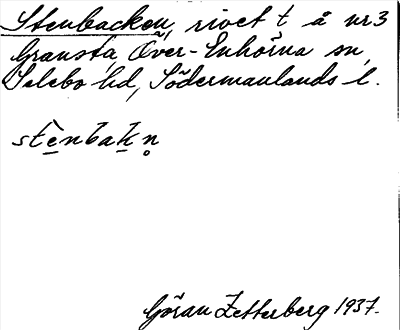 Stenbacken, rivet t å nr 3
Gransta, Över-Enhörna sn,
Selebo hd, Södermanlands l.
stenbakn
Göran Zetterberg 1937.